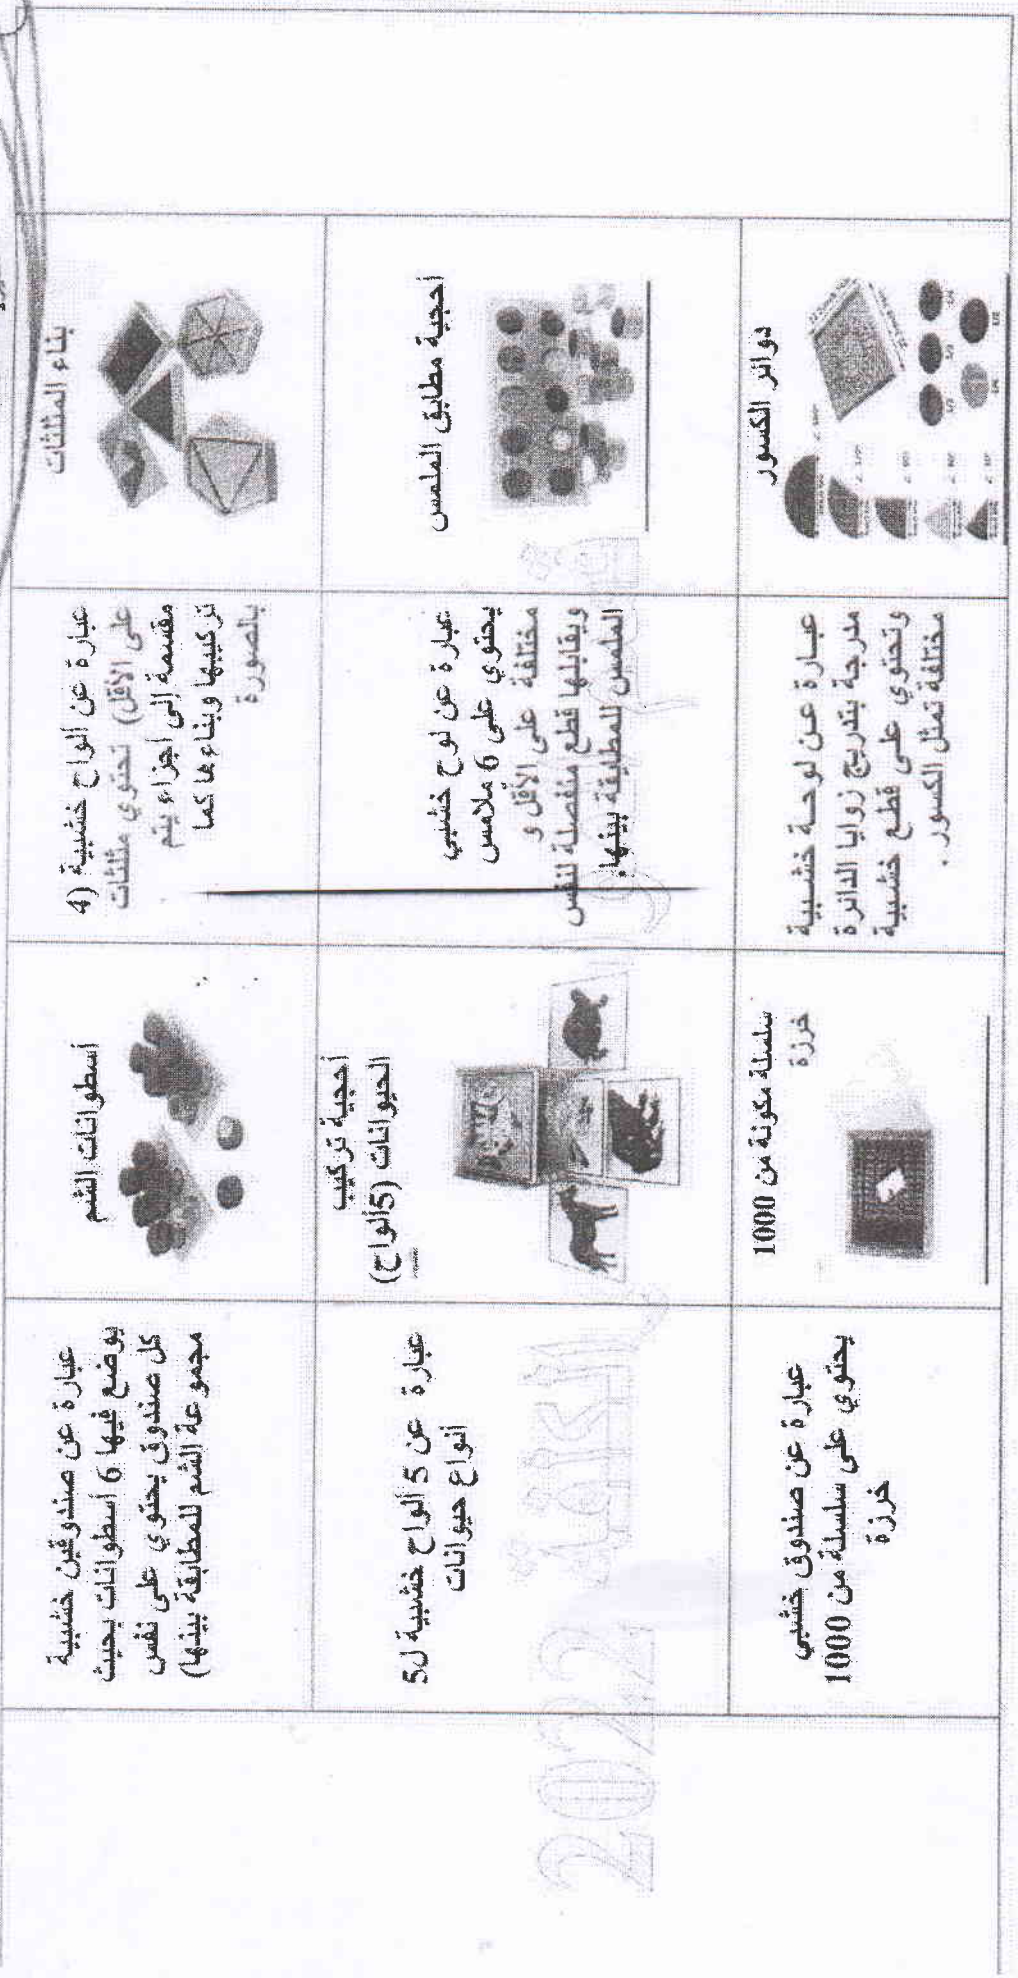 بناء المثلثات
عبارة عن الواح خشبية (4
على الأقل) تحتوي مثلثات
مقسمة إلى اجزاء يتم
تركيبها وبناءها كما
بالصورة
أسطوانات الشم
عبارة عن صندوقين خشبية
يوضع فيها 6 أسطوانات بحيث
كل صندوق يحتوي على نفس
مجموعة الشم للمطابقة بينها)
أحجية مطابق الملمس
عبارة عن لوح خشبي
يحتوي على 6 ملامس
مختلفة على الأقل و
ويقابلها قطع منفصلة لنفس
الملمس للمطابقة بينها.
أحجية تركيب
الحيوانات (5ألواح)
عبارة عن 5 ألواح خشبية ل5
انواع حيوانات
دوائر الكسور
عبارة عن لوحة خشبية
مدرجة بتدريج زوايا الدائرة
وتحتوي على قطع خشبية
مختلفة تمثل الكسور .
سلسلة مكونة من 1000
خرزة
عبارة عن صندوق خشبي
يحتوي على سلسلة من 1000
خرزة
2022